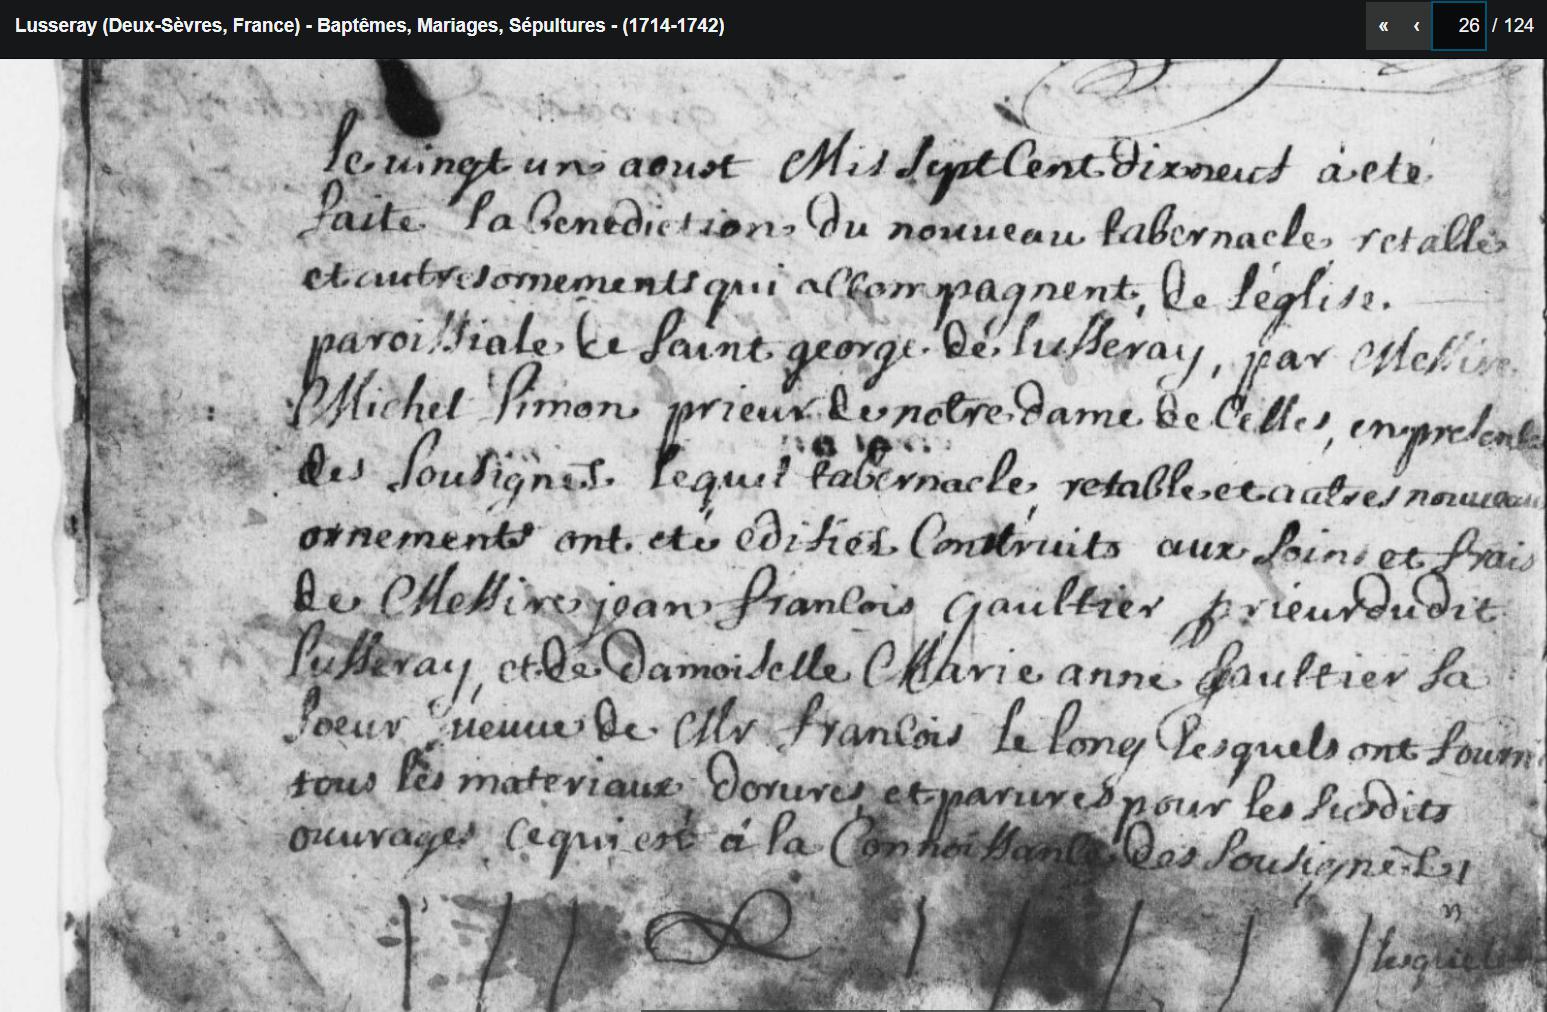 Lusseray (Deux-Sèvres, France) - Baptêmes, Mariages, Sépultures - (1714-1742)
« ‹ 26 / 124
le vingt un aoust Mil sept Cent dixneuf à eté
faite la benediction du nouveau tabernacle retable
et autres ornements qui accompagnent, de l'église
paroissiale de saint george de lusseray, par Messire
Michel simon prieur de notre dame de Celles, en presence
des sousignés. lequel tabernacle, retable et autres nouveaux
ornements ont eté edifiés Construits aux soins et frais
de Messire jean francois gaultier prieur dudit
lusseray, et de damoiselle Marie anne gaultier sa
soeur veuve de Mr francois le long lesquels ont fourni
tous les materiaux dorures et parures pour les susdits
ouvrages ce qui est à la Connoissance des sousignés